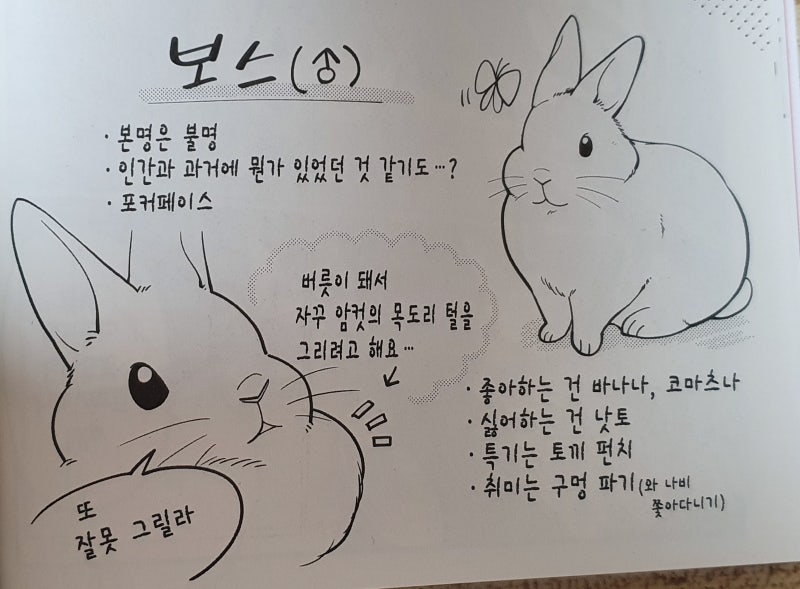 보스(♂)
· 본명은 불명
· 인간과 과거에 뭔가 있었던 것 같기도…?
· 포커페이스
버릇이 돼서
자꾸 암컷의 목도리 털을
그리려고 해요…
또
잘못 그릴라
· 좋아하는 건 바나나, 코마츠나
· 싫어하는 건 낫토
· 특기는 토끼 펀치
· 취미는 구멍 파기(와 나비
쫓아다니기)